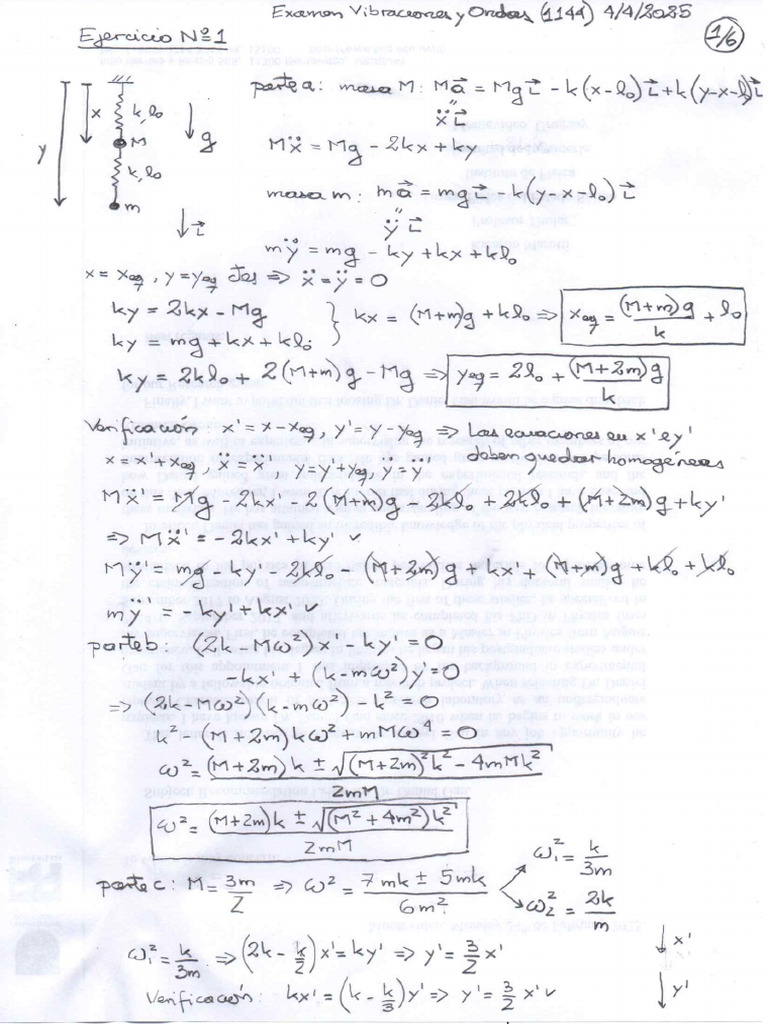 Examen Vibraciones y Ondas (1144) 4/4/2025
1/6
Ejercicio Nº1
k, l₀
x
M
g
y
k, l₀
m
i⃗
parte a: masa M: Ma⃗ = Mg i⃗ - k(x-l₀) i⃗ + k(y-x-l₀) i⃗
ẍ i⃗
Mẍ = Mg - 2kx + ky
masa m: ma⃗ = mg i⃗ - k(y-x-l₀) i⃗
ÿ i⃗
mÿ = mg - ky + kx + kl₀
x = xeq, y = yeq ctes ⇒ ẍ = ÿ = 0
ky = 2kx - Mg
ky = mg + kx + kl₀
} kx = (M+m)g + kl₀ ⇒ xeq = (M+m)g/k + l₀
ky = 2kl₀ + 2(M+m)g - Mg ⇒ yeq = 2l₀ + (M+2m)g/k
Verificación: x' = x-xeq, y' = y-yeq ⇒ Las ecuaciones en x' e y'
x = x'+xeq, ẍ = ẍ', y = y'+yeq, ÿ = ÿ' deben quedar homogéneas
Mẍ' = Mg - 2kx' - 2(M+m)g - 2kl₀ + 2kl₀ + (M+2m)g + ky'
⇒ Mẍ' = -2kx' + ky' ✓
Mÿ' = mg - ky' - 2kl₀ - (M+2m)g + kx' + (M+m)g + kl₀ + kl₀
mÿ' = -ky' + kx' ✓
parte b: (2k - Mω²)x' - ky' = 0
-kx' + (k - mω²)y' = 0
⇒ (2k - Mω²)(k - mω²) - k² = 0
k² - (M+2m)kω² + mMω⁴ = 0
ω² = (M+2m)k ± √((M+2m)²k² - 4mMk²) / 2mM
ω² = (M+2m)k ± √((M²+4m²)k²) / 2mM
parte c: M = 3m/2 ⇒ ω² = 7mk ± 5mk / 6m²
ω₁² = k/3m
ω₂² = 2k/m
ω₁² = k/3m ⇒ (2k - k/2)x' = ky' ⇒ y' = 3/2 x'
x'
Verificación: kx' = (k - k/3)y' ⇒ y' = 3/2 x' ✓
y'